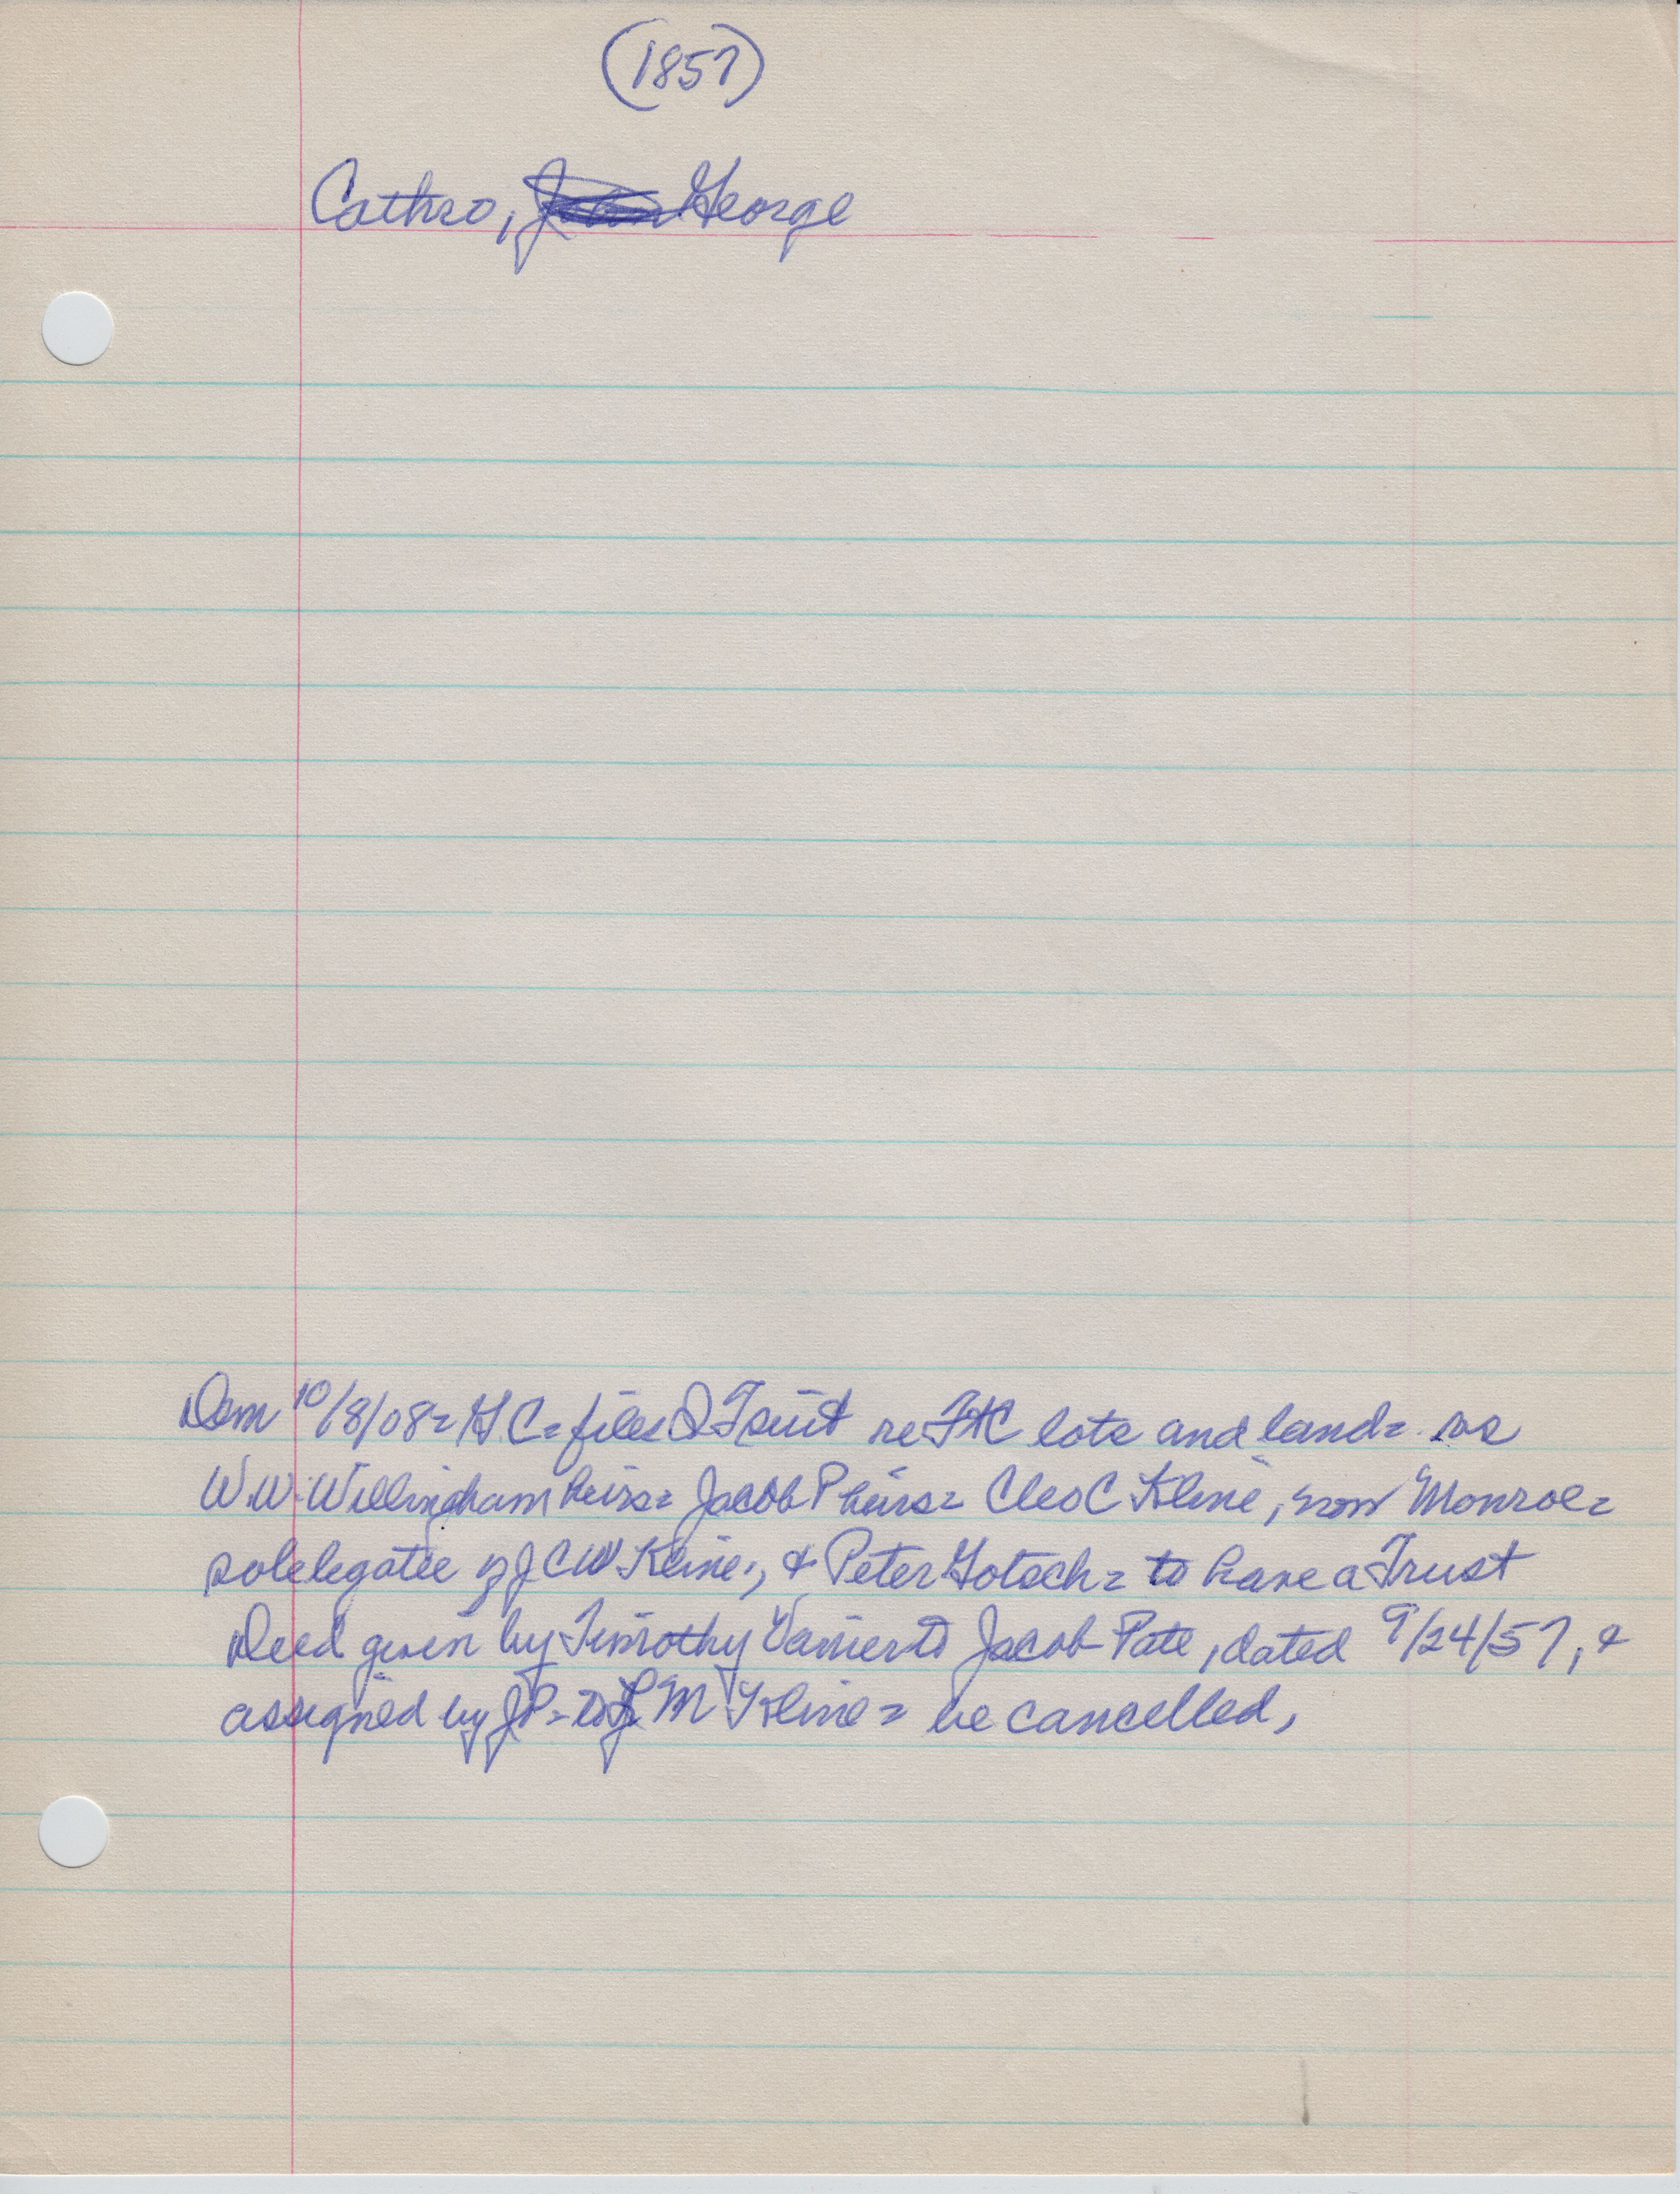 (1857)
Cathro, George
Dem 10/8/08= G C= files QT suit re FtC lots and land= vs
W.W. Willingham heirs= Jacob P heirs= Cleo C Kline, now Monroe=
sole legatee of J C W Kline, & Peter Gotsch= to have a Trust
Deed given by Timothy to Jacob Pate, dated 9/24/57, &
assigned by JP= to M Kline= be cancelled,